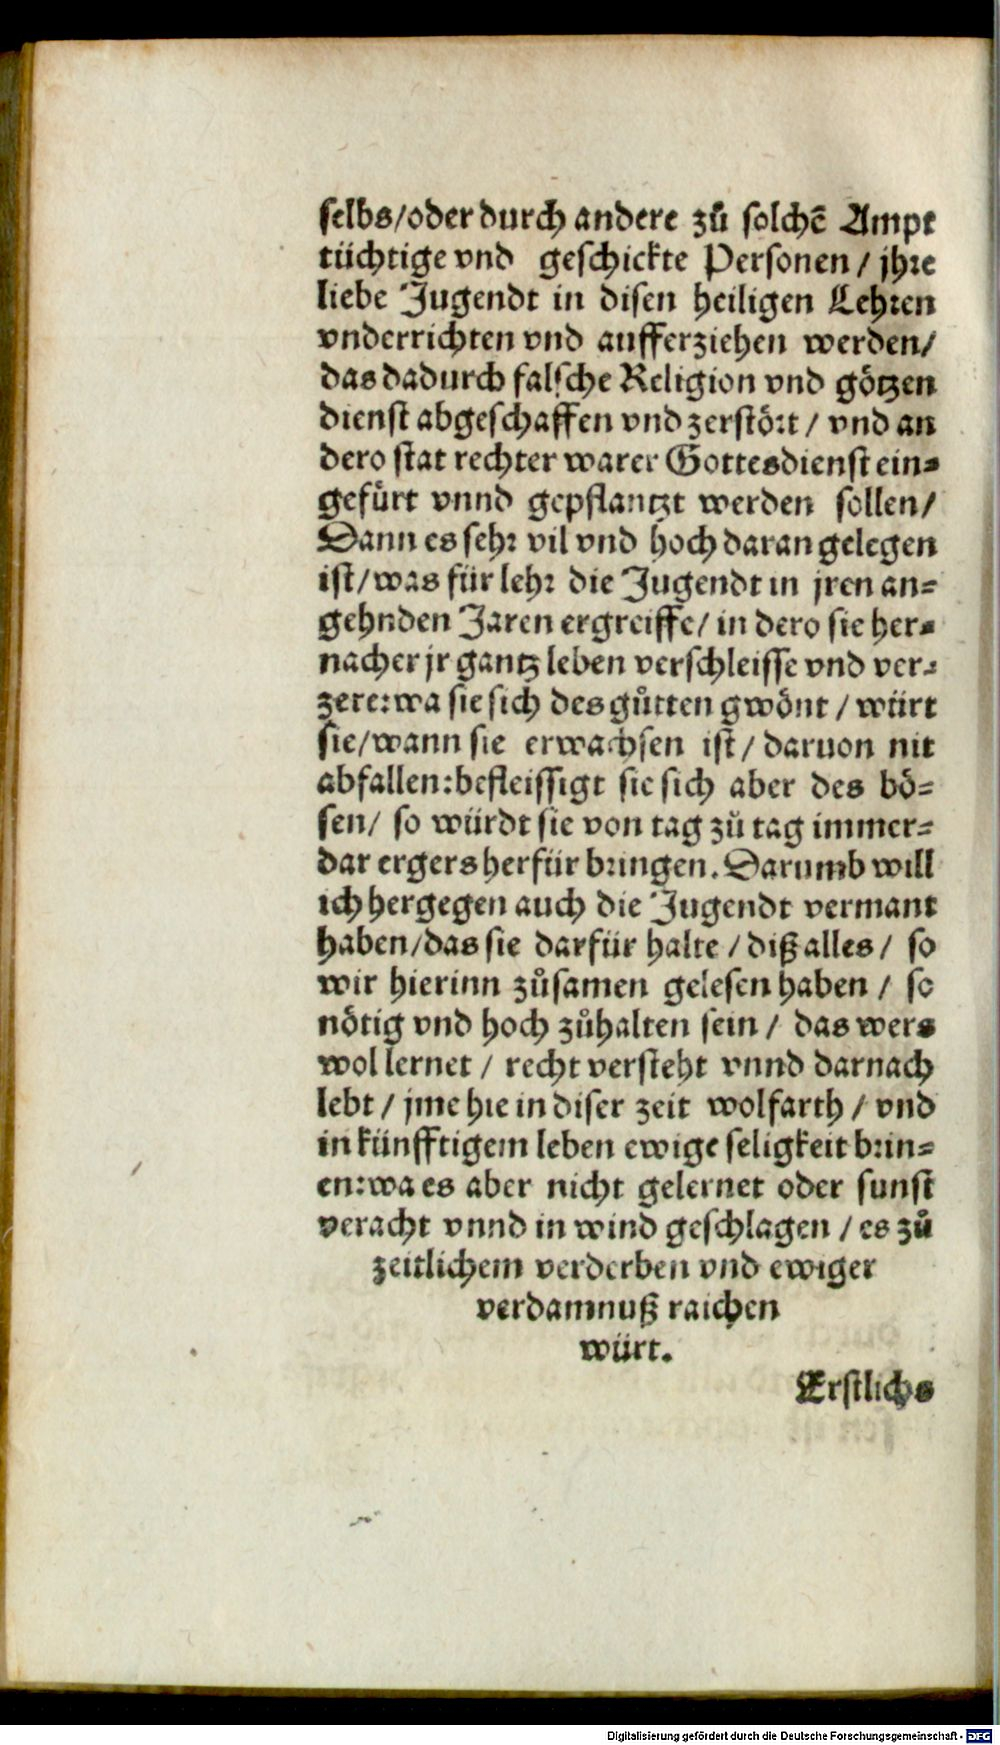 selbs/oder durch andere zů solchē Ampt
tüchtige vnd geschickte Personen / jhre
liebe Jugendt in disen heiligen Lehren
vnderrichten vnd aufferziehen werden/
das dadurch falsche Religion vnd götzen
dienst abgeschaffen vnd zerstört / vnd an
dero stat rechter warer Gottesdienst ein=
gefürt vnnd gepflantzt werden sollen/
Dann es sehr vil vnd hoch daran gelegen
ist/was für lehr die Jugendt in jren an=
gehnden Jaren ergreiffe/ in dero sie her=
nacher jr gantz leben verschleisse vnd ver=
zere:wa sie sich des gůtten gwönt / würt
sie/wann sie erwachsen ist/ daruon nit
abfallen:befleissigt sie sich aber des bö=
sen/ so würdt sie von tag zů tag immer=
dar ergers herfür bringen. Darumb will
ich hergegen auch die Jugendt vermant
haben/das sie darfür halte / diß alles / so
wir hierinn zůsamen gelesen haben / so
nötig vnd hoch zůhalten sein / das wers
wol lernet / recht versteht vnnd darnach
lebt / jme hie in diser zeit wolfarth / vnd
in künfftigem leben ewige seligkeit brin=
en:wa es aber nicht gelernet oder sunst
veracht vnnd in wind geschlagen / es zů
zeitlichem verderben vnd ewiger
verdamnuß raichen
würt.
Erstlichs
Digitalisierung gefördert durch die Deutsche Forschungsgemeinschaft - DFG